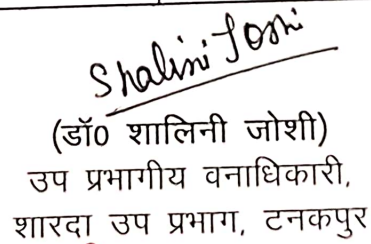 Shalini Joshi
(डॉ0 शालिनी जोशी)
उप प्रभागीय वनाधिकारी,
शारदा उप प्रभाग, टनकपुर